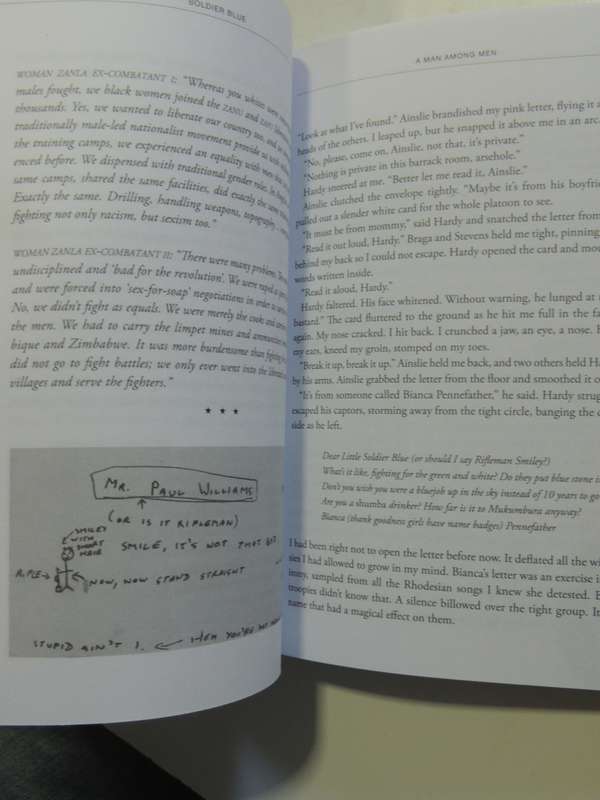 SOLDIER BLUE
WOMAN ZANLA EX-COMBATANT I: "Whereas you whites were
males fought, we black women joined the ZANU and ZAPU
thousands. Yes, we wanted to liberate our country too, and
traditionally male-led nationalist movement provide us with
the training camps, we experienced an equality with men
enced before. We dispensed with traditional gender roles.
same camps, shared the same facilities, did exactly the same
Exactly the same. Drilling, handling weapons, topography
fighting not only racism, but sexism too."
WOMAN ZANLA EX-COMBATANT II: "There were many problems.
undisciplined and 'bad for the revolution'. We were raped
and were forced into 'sex-for-soap' negotiations in order to
No, we didn't fight as equals. We were merely the cooks and
the men. We had to carry the limpet mines and ammunition
bique and Zimbabwe. It was more burdensome than fighting
did not go to fight battles; we only ever went into the
villages and serve the fighters."
* * *
MR. PAUL WILLIAMS
(OR IS IT RIFLEMAN)
SMILEY
WITH
SHORT
HAIR
SMILE, IT'S NOT THAT BAD
RIFLE
NOW, NOW STAND STRAIGHT
STUPID AIN'T I. HEH YOU'RE NOT
A MAN AMONG MEN
"Look at what I've found." Ainslie brandished my pink letter, flying it a
heads of the others. I leaped up, but he snapped it above me in an arc.
"No, please, come on, Ainslie, not that, it's private."
"Nothing is private in this barrack room, arsehole."
Hardy sneered at me. "Better let me read it, Ainslie."
Ainslie clutched the envelope tightly. "Maybe it's from his boyfri
pulled out a slender white card for the whole platoon to see.
"It must be from mommy," said Hardy and snatched the letter from
"Read it out loud, Hardy." Braga and Stevens held me tight, pinning
behind my back so I could not escape. Hardy opened the card and mou
words written inside.
"Read it aloud, Hardy."
Hardy faltered. His face whitened. Without warning, he lunged at
bastard." The card fluttered to the ground as he hit me full in the fa
again. My nose cracked. I hit back. I crunched a jaw, an eye, a nose. H
my ears, kneed my groin, stomped on my toes.
"Break it up, break it up." Ainslie held me back, and two others held Ha
by his arms. Ainslie grabbed the letter from the floor and smoothed it o
"It's from someone called Bianca Pennefather," he said. Hardy strug
escaped his captors, storming away from the tight circle, banging the
side as he left.
Dear Little Soldier Blue (or should I say Rifleman Smiley?)
What's it like, fighting for the green and white? Do they put blue stone i
Don't you wish you were a bluejob up in the sky instead of 10 years to go
Are you a shumba drinker? How far is it to Mukumbura anyway?
Bianca (thank goodness girls have name badges) Pennefather
I had been right not to open the letter before now. It deflated all the wi
sies I had allowed to grow in my mind. Bianca's letter was an exercise i
irony, sampled from all the Rhodesian songs I knew she detested. B
troopies didn't know that. A silence billowed over the tight group. It
name that had a magical effect on them.